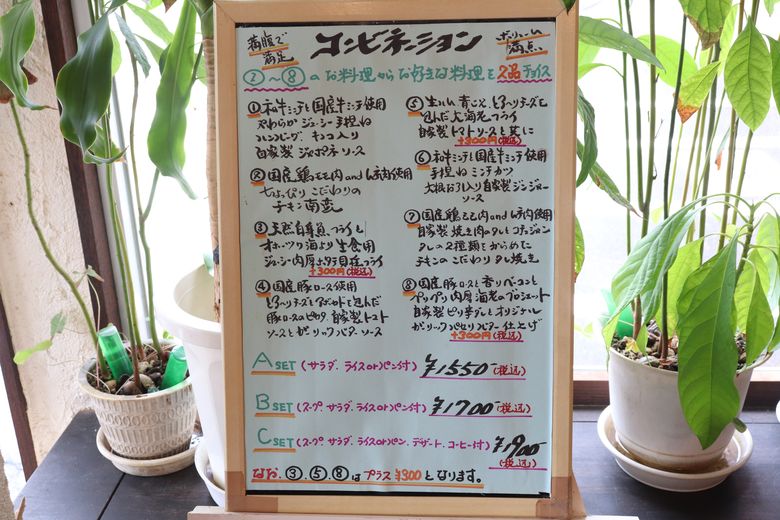 満腹で
満足
コンビネーション
ボリューム
満点
②～⑧のお料理からお好きな料理を2品チョイス
①和牛ミンチと国産牛ミンチ使用
やわらかジューシー手捏ね
ハンバーグ キノコ入り
自家製 ジャポネソース
②国産鶏モモ肉and ムネ肉使用
七つぶりこだわりの
チキン南蛮
③天然白身魚フライと
オホーツク海より生食用
ジューシー肉厚ホタテ貝柱フライ
+300円(税込)
④国産豚ロース使用
とろ〜りチーズとアボカドを包んだ
豚ロースのピカタ 自家製トマト
ソースとガーリックバターソース
⑤生ハム 青じそ とろ〜りチーズを
包んだ大海老フライ
自家製トマトソースと共に
+300円(税込)
⑥和牛ミンチと国産牛ミンチ使用
手捏ねミンチカツ
大根おろし入り自家製ジンジャー
ソース
⑦国産鶏モモ肉and ムネ肉使用
自家製焼き肉のタレとコチュジャン
タレの2種類をからめた
チキンのこだわりタレ焼き
⑧国産豚ロースと香りベーコンと
プリップリ肉厚海老のブロシェット
自家製ピリ辛ダレとオリジナル
ガーリックパセリバター仕上げ
+300円(税込)
A SET (サラダ、ライスorパン付) ¥1550-(税込)
B SET (スープ、サラダ、ライスorパン付) ¥1700-(税込)
C SET (スープ、サラダ、ライスorパン、デザート、コーヒー付) ¥1900-
(税込)
なお、③.⑤.⑧はプラス¥300となります。